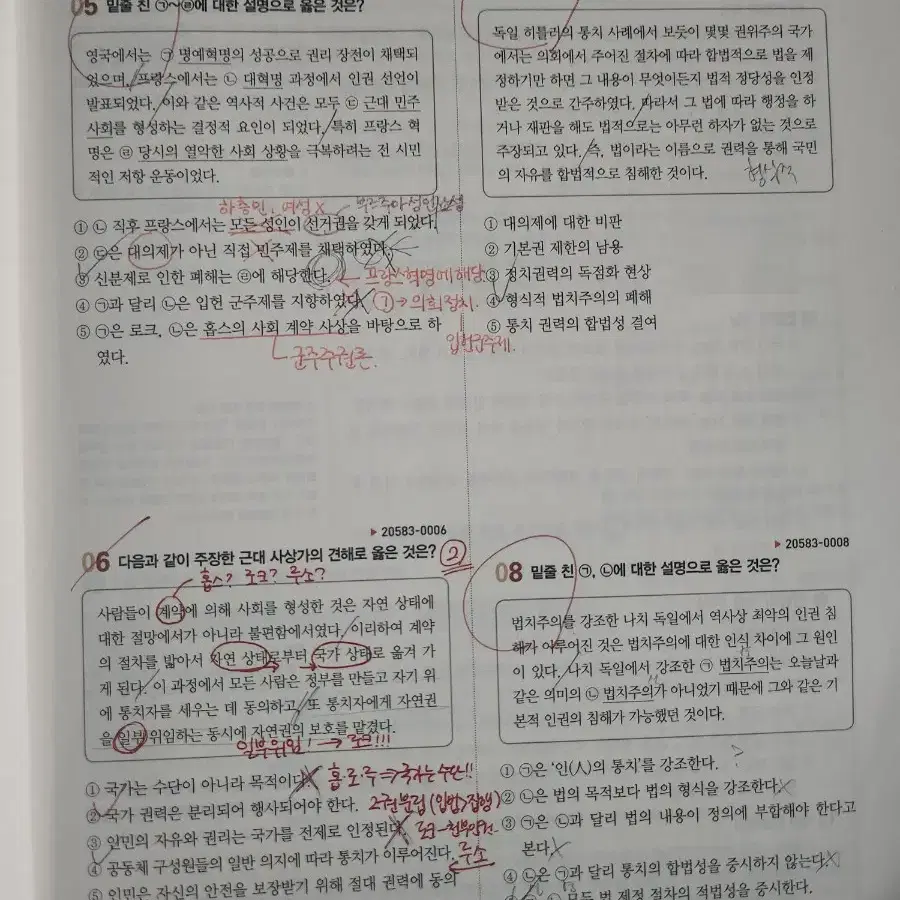 05 밑줄 친 ㉠~㉣에 대한 설명으로 옳은 것은?
영국에서는 ㉠ 명예혁명의 성공으로 권리 장전이 채택되
었으며, 프랑스에서는 ㉡ 대혁명 과정에서 인권 선언이
발표되었다. 이와 같은 역사적 사건은 모두 ㉢ 근대 민주
사회를 형성하는 결정적 요인이 되었다. 특히 프랑스 혁
명은 ㉣ 당시의 열악한 사회 상황을 극복하려는 전 시민
적인 저항 운동이었다.
하층민, 여성 X
① ㉡ 직후 프랑스에서는 모든 성인이 선거권을 갖게 되었다.
② ㉢은 대의제가 아닌 직접 민주제를 채택하였다.
③ 신분제로 인한 폐해는 ㉣에 해당한다. ← 프랑스혁명에 해당.
④ ㉠과 달리 ㉡은 입헌 군주제를 지향하였다. ㉠ → 의회정치.
입헌군주제.
⑤ ㉠은 로크, ㉡은 홉스의 사회 계약 사상을 바탕으로 하
였다.
군주주권론.
▶ 20583-0006
06 다음과 같이 주장한 근대 사상가의 견해로 옳은 것은? ②
홉스? 로크? 루소?
사람들이 계약에 의해 사회를 형성한 것은 자연 상태에
대한 절망에서가 아니라 불편함에서였다. 이리하여 계약
의 절차를 밟아서 자연 상태로부터 국가 상태로 옮겨 가
게 된다. 이 과정에서 모든 사람은 정부를 만들고 자기 위
에 통치자를 세우는 데 동의하고, 또 통치자에게 자연권
을 일부 위임하는 동시에 자연권의 보호를 맡겼다.
일부위임! → 로크!!!
① 국가는 수단이 아니라 목적이다. X 홉·로·루 ⇒ 국가는 수단!!
② 국가 권력은 분리되어 행사되어야 한다. 2권분립 (입법>집행)
③ 인민의 자유와 권리는 국가를 전제로 인정된다. 로크-천부인권
④ 공동체 구성원들의 일반 의지에 따라 통치가 이루어진다. 루소
⑤ 인민은 자신의 안전을 보장받기 위해 절대 권력에 동의
독일 히틀러의 통치 사례에서 보듯이 몇몇 권위주의 국가
에서는 의회에서 주어진 절차에 따라 합법적으로 법을 제
정하기만 하면 그 내용이 무엇이든지 법적 정당성을 인정
받은 것으로 간주하였다. 따라서 그 법에 따라 행정을 하
거나 재판을 해도 법적으로는 아무런 하자가 없는 것으로
주장되고 있다. 즉, 법이라는 이름으로 권력을 통해 국민
의 자유를 합법적으로 침해한 것이다.
① 대의제에 대한 비판
② 기본권 제한의 남용
③ 정치권력의 독점화 현상
④ 형식적 법치주의의 폐해
⑤ 통치 권력의 합법성 결여
▶ 20583-0008
08 밑줄 친 ㉠, ㉡에 대한 설명으로 옳은 것은?
법치주의를 강조한 나치 독일에서 역사상 최악의 인권 침
해가 이루어진 것은 법치주의에 대한 인식 차이에 그 원인
이 있다. 나치 독일에서 강조한 ㉠ 법치주의는 오늘날과
같은 의미의 ㉡ 법치주의가 아니었기 때문에 그와 같은 기
본적 인권의 침해가 가능했던 것이다.
① ㉠은 '인(人)의 통치'를 강조한다. ?
② ㉡은 법의 목적보다 법의 형식을 강조한다. X
③ ㉠은 ㉡과 달리 법의 내용이 정의에 부합해야 한다고
본다. X
④ ㉡은 ㉠과 달리 통치의 합법성을 중시하지 않는다. X
모든 법 제정 절차의 적법성을 중시한다.